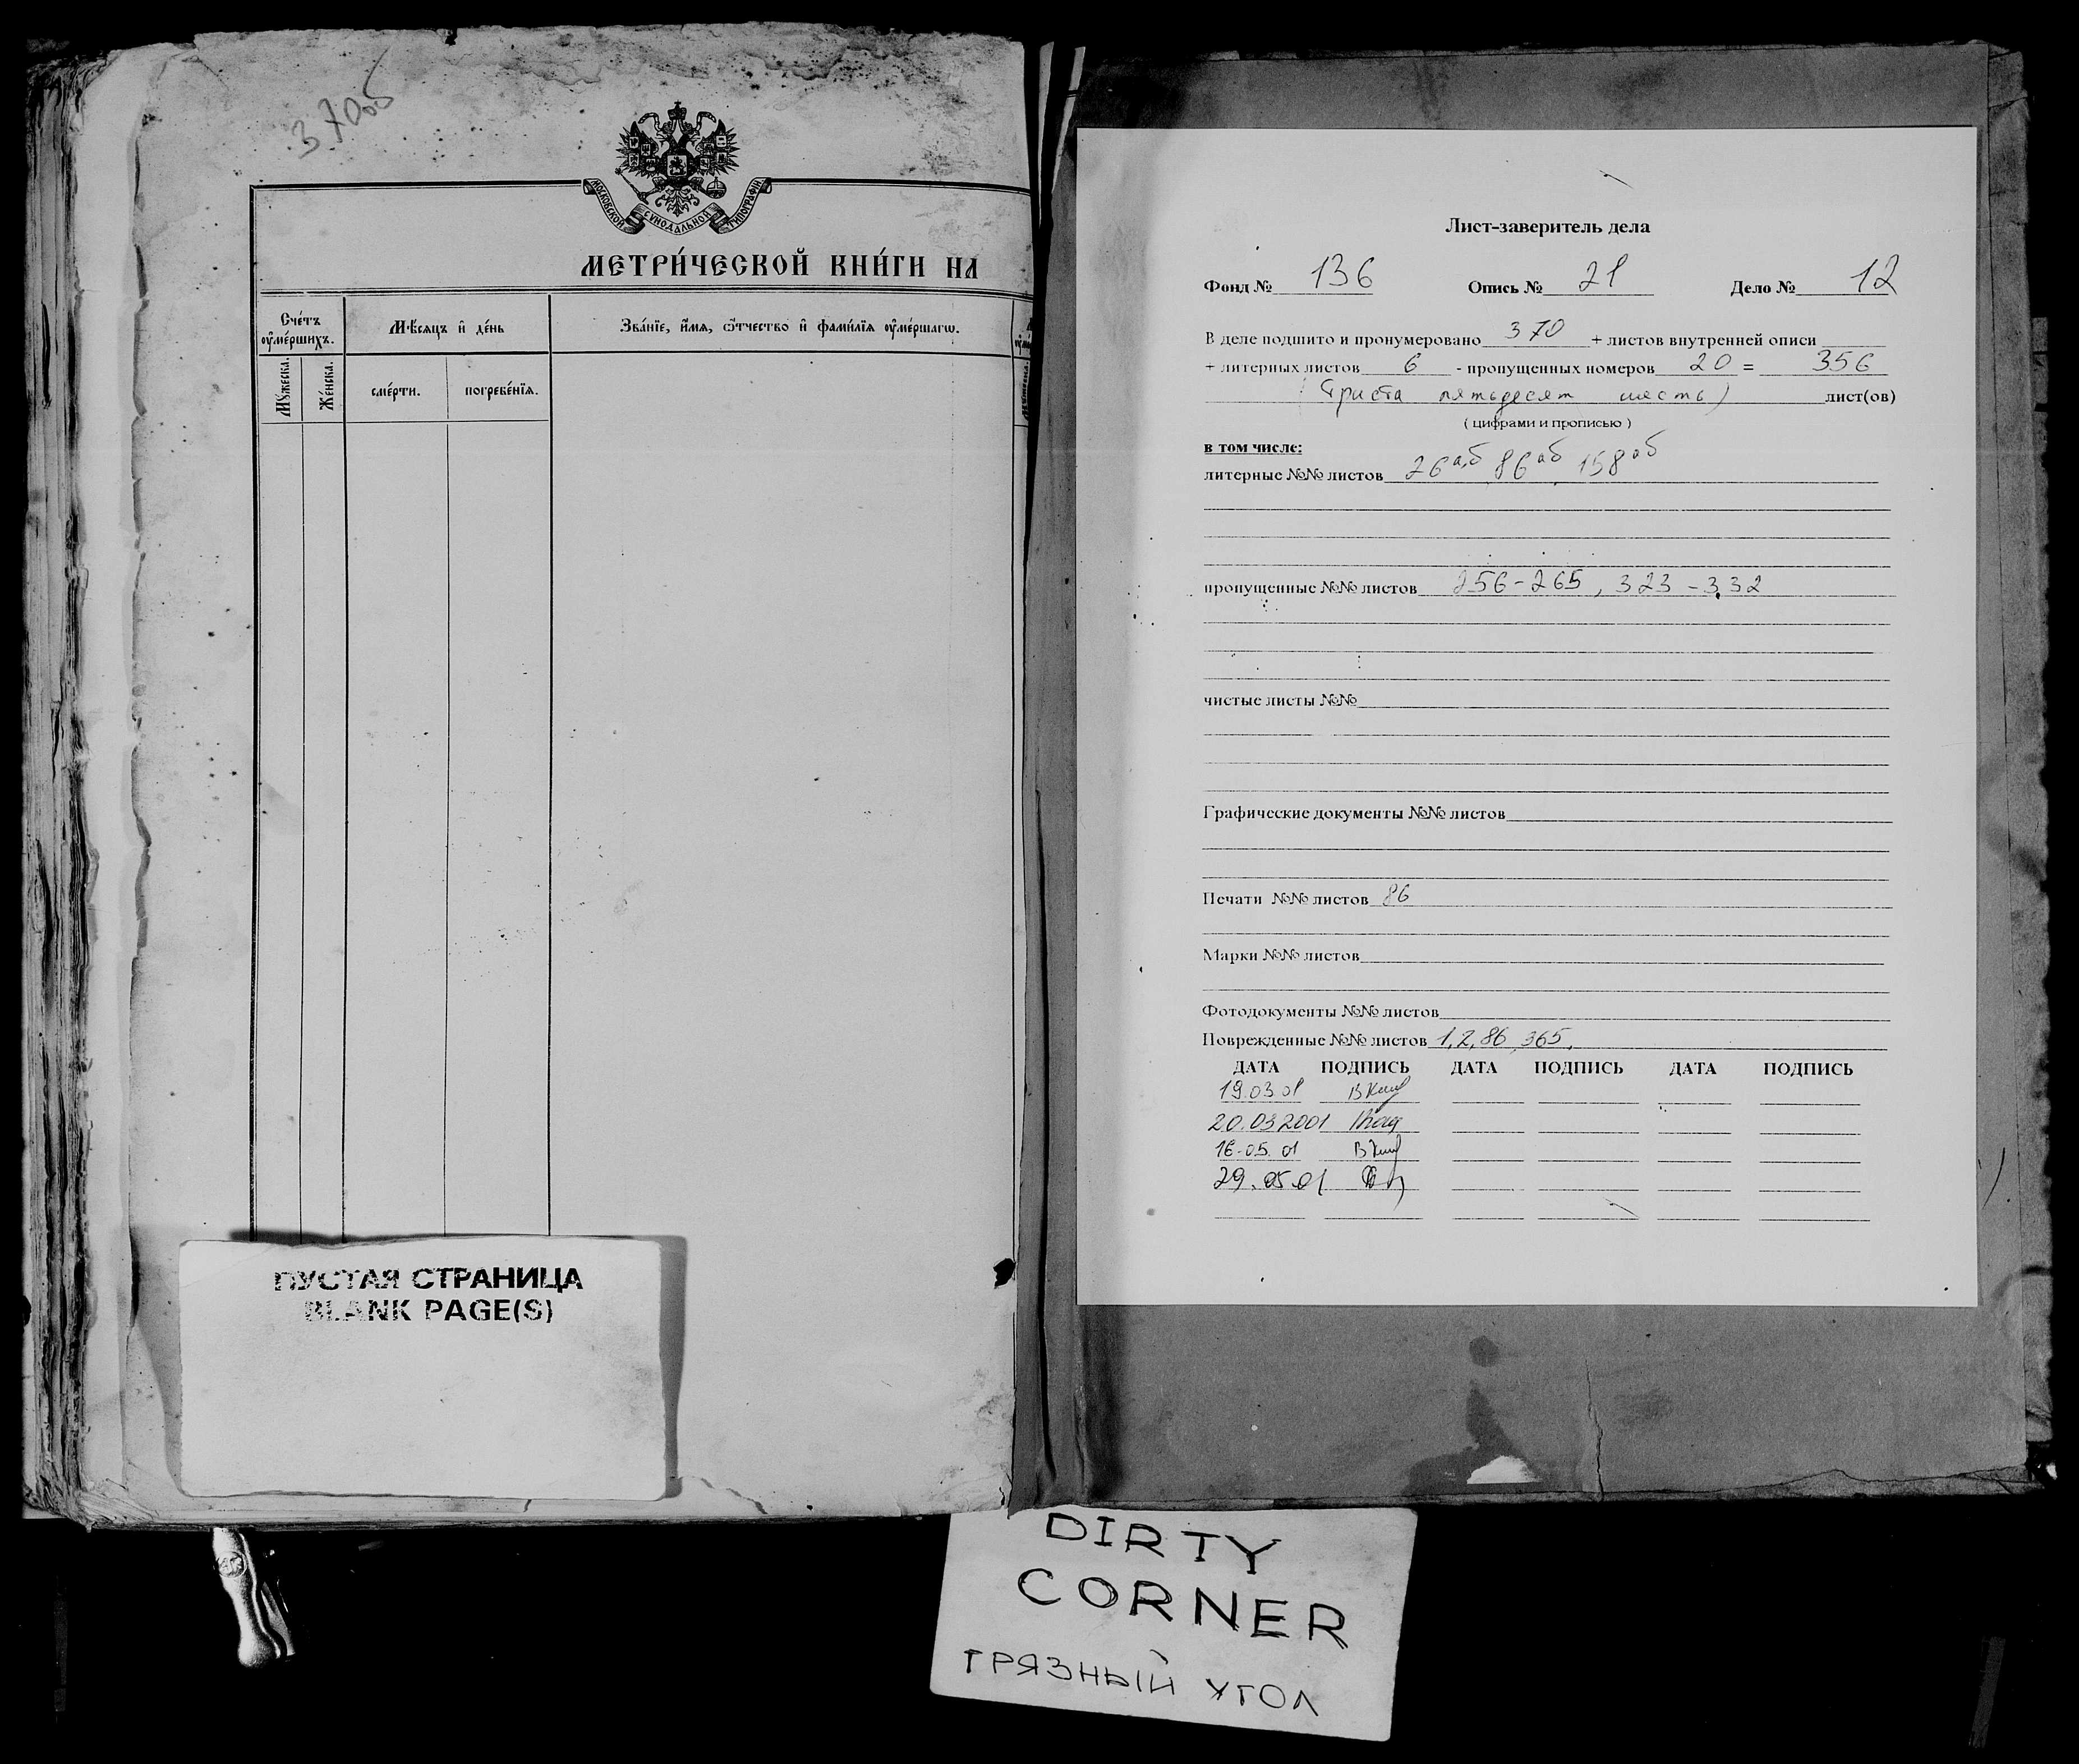 370об
МОСКОВСКОЙ СѴНОДАЛЬНОЙ ТИПОГРАФІИ
МЕТРИ́ЧЕСКОЙ КНИ́ГИ НА
Сче́тъ ᲂу҆ме́ршихъ.
Мѣ́сяцъ и҆ де́нь
Зва́нїе, и҆́мѧ, ѻ҆́тчество и҆ фами́лїѧ ᲂу҆ме́ршагѡ.
Мꙋ́жеска.
Же́нска.
сме́рти.
погребе́нїѧ.
ПУСТАЯ СТРАНИЦА
BLANK PAGE(S)
Лист-заверитель дела
Фонд № 136 Опись № 21 Дело № 12
В деле подшито и пронумеровано 370 + листов внутренней описи
+ литерных листов 6 - пропущенных номеров 20 = 356
(триста пятьдесят шесть) лист(ов)
( цифрами и прописью )
в том числе:
литерные №№ листов 26а,б 86аб, 158аб
пропущенные №№ листов 256-265, 323-332
чистые листы №№
Графические документы №№ листов
Печати №№ листов 86
Марки №№ листов
Фотодокументы №№ листов
Поврежденные №№ листов 1,2,86,365.
ДАТА ПОДПИСЬ ДАТА ПОДПИСЬ ДАТА ПОДПИСЬ
19.03.01
20.03.2001
16.05.01
29.05.01
DIRTY
CORNER
ГРЯЗНЫЙ УГОЛ